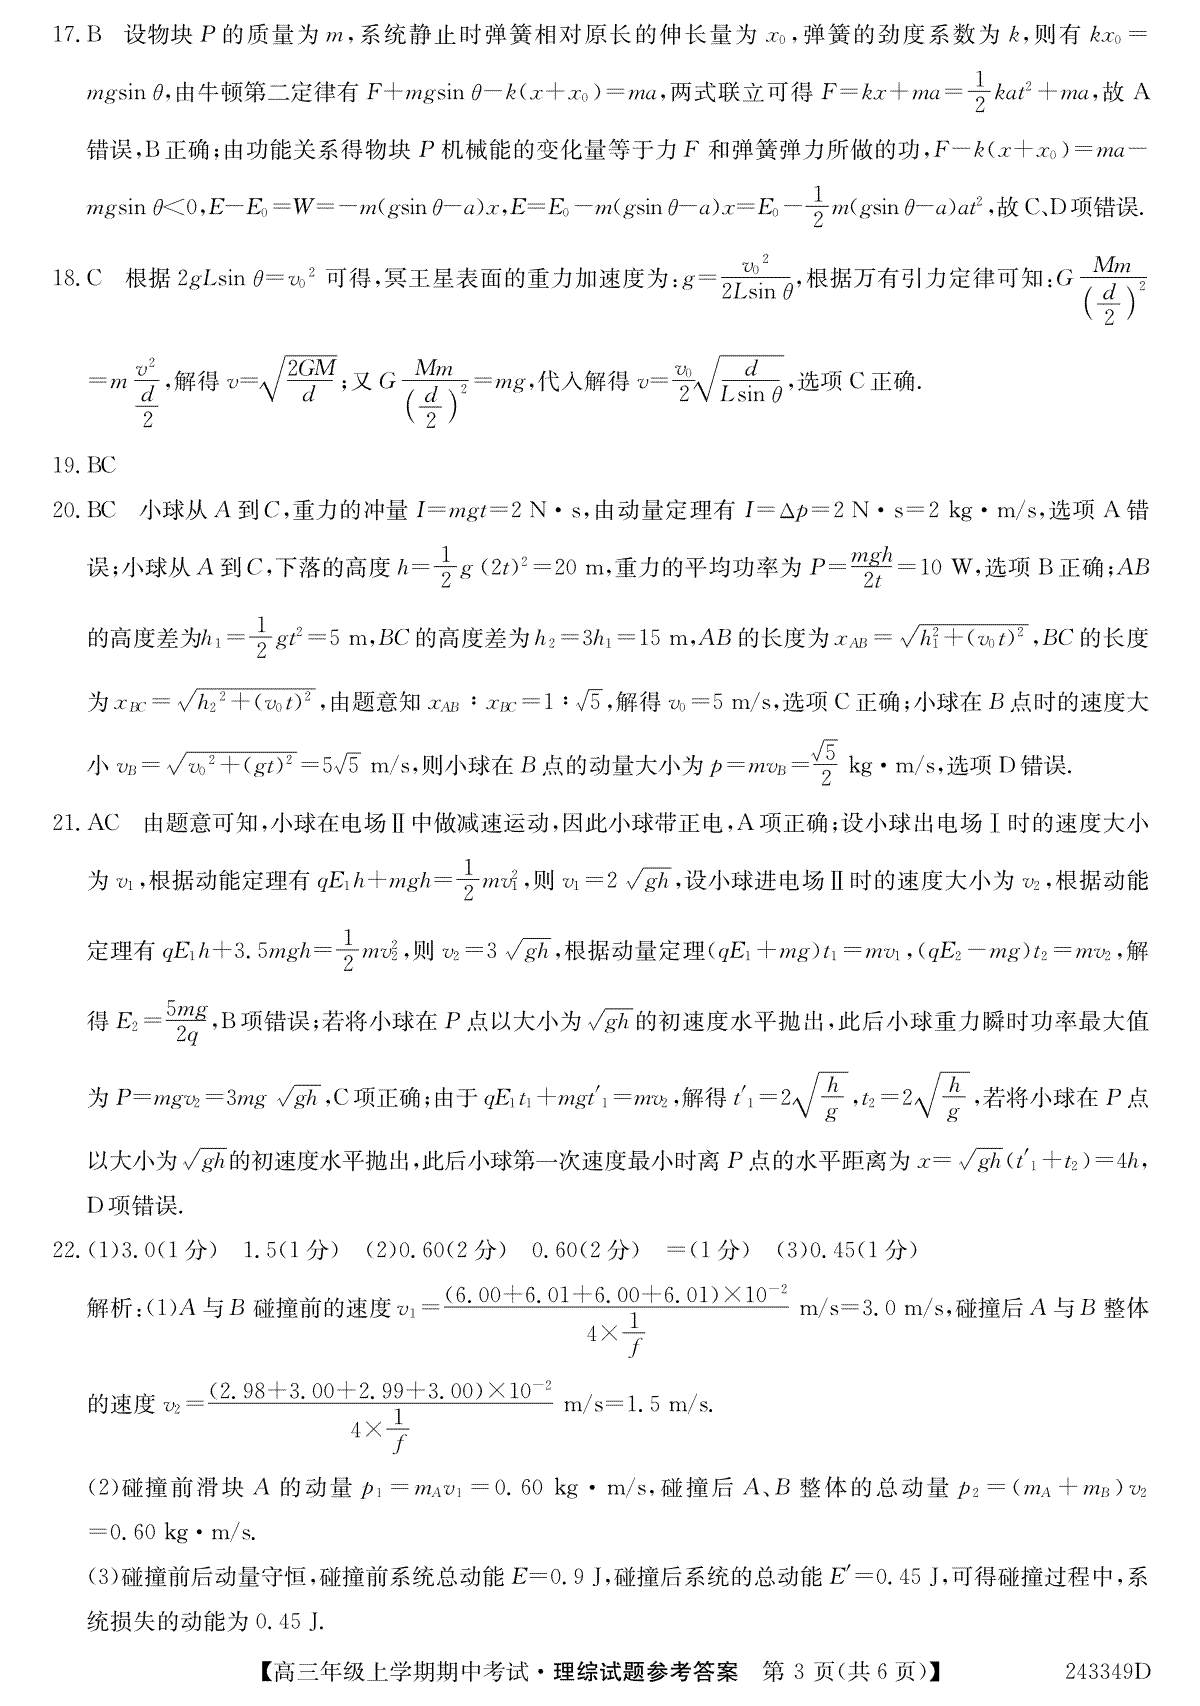 17. B 设物块 P 的质量为 m,系统静止时弹簧相对原长的伸长量为 x₀,弹簧的劲度系数为 k,则有 kx₀=
mgsin θ,由牛顿第二定律有 F+mgsin θ-k(x+x₀)=ma,两式联立可得 F=kx+ma=\frac{1}{2}kat²+ma,故 A
错误,B正确;由功能关系得物块 P 机械能的变化量等于力 F 和弹簧弹力所做的功,F-k(x+x₀)=ma-
mgsin θ<0,E-E₀=W=-m(gsin θ-a)x,E=E₀-m(gsin θ-a)x=E₀-\frac{1}{2}m(gsin θ-a)at²,故 C、D项错误.
18. C 根据 2gLsin θ=v₀² 可得,冥王星表面的重力加速度为:g=\frac{v₀²}{2Lsin θ},根据万有引力定律可知:G\frac{Mm}{(\frac{d}{2})²}
=m\frac{v²}{\frac{d}{2}},解得 v=\sqrt{\frac{2GM}{d}};又 G\frac{Mm}{(\frac{d}{2})²}=mg,代入解得 v=\frac{v₀}{2}\sqrt{\frac{d}{Lsin θ}},选项 C 正确.
19. BC
20. BC 小球从 A 到C,重力的冲量 I=mgt=2 N·s,由动量定理有 I=Δp=2 N·s=2 kg·m/s,选项 A 错
误;小球从 A 到C,下落的高度 h=\frac{1}{2}g (2t)²=20 m,重力的平均功率为 P=\frac{mgh}{2t}=10 W,选项 B 正确;AB
的高度差为h₁=\frac{1}{2}gt²=5 m,BC 的高度差为 h₂=3h₁=15 m,AB 的长度为 x_{AB}=\sqrt{h₁²+(v₀t)²},BC 的长度
为 x_{BC}=\sqrt{h₂²+(v₀t)²},由题意知 x_{AB}∶x_{BC}=1∶\sqrt{5},解得 v₀=5 m/s,选项 C 正确;小球在 B 点时的速度大
小 v_B=\sqrt{v₀²+(gt)²}=5\sqrt{5} m/s,则小球在 B 点的动量大小为 p=mv_B=\frac{\sqrt{5}}{2} kg·m/s,选项 D 错误.
21. AC 由题意可知,小球在电场Ⅱ中做减速运动,因此小球带正电,A 项正确;设小球出电场Ⅰ时的速度大小
为 v₁,根据动能定理有 qE₁h+mgh=\frac{1}{2}mv₁²,则 v₁=2\sqrt{gh},设小球进电场Ⅱ时的速度大小为 v₂,根据动能
定理有 qE₁h+3.5mgh=\frac{1}{2}mv₂²,则 v₂=3\sqrt{gh},根据动量定理(qE₁+mg)t₁=mv₁,(qE₂-mg)t₂=mv₂,解
得 E₂=\frac{5mg}{2q},B项错误;若将小球在 P 点以大小为\sqrt{gh}的初速度水平抛出,此后小球重力瞬时功率最大值
为 P=mgv₂=3mg\sqrt{gh},C 项正确;由于 qE₁t₁+mgt′₁=mv₂,解得 t′₁=2\sqrt{\frac{h}{g}},t₂=2\sqrt{\frac{h}{g}},若将小球在 P 点
以大小为\sqrt{gh}的初速度水平抛出,此后小球第一次速度最小时离 P 点的水平距离为 x=\sqrt{gh}(t′₁+t₂)=4h,
D项错误.
22. (1)3.0(1分) 1.5(1分) (2)0.60(2分) 0.60(2分) =(1分) (3)0.45(1分)
解析:(1)A 与 B 碰撞前的速度 v₁=\frac{(6.00+6.01+6.00+6.01)×10⁻²}{4×\frac{1}{f}} m/s=3.0 m/s,碰撞后 A 与 B 整体
的速度 v₂=\frac{(2.98+3.00+2.99+3.00)×10⁻²}{4×\frac{1}{f}} m/s=1.5 m/s.
(2)碰撞前滑块 A 的动量 p₁=m_Av₁=0.60 kg·m/s,碰撞后 A、B 整体的总动量 p₂=(m_A+m_B)v₂
=0.60 kg·m/s.
(3)碰撞前后动量守恒,碰撞前系统总动能 E=0.9 J,碰撞后系统的总动能 E′=0.45 J,可得碰撞过程中,系
统损失的动能为 0.45 J.
【高三年级上学期期中考试·理综试题参考答案 第 3 页(共 6 页)】 243349D